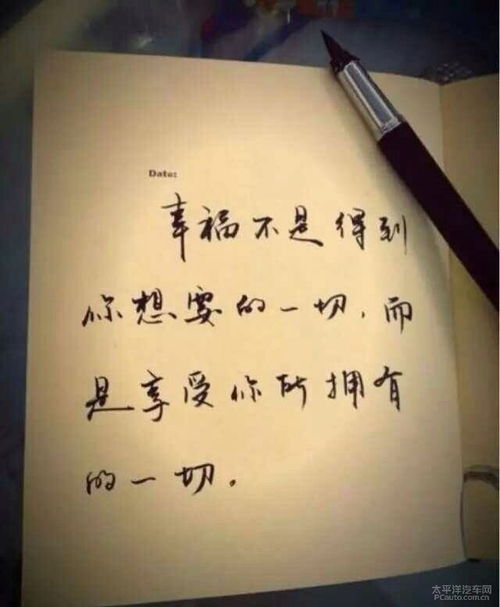 Date:
幸福不是得到
你想要的一切,而
是享受你所拥有
的一切。
太平洋汽车网
PCauto.com.cn